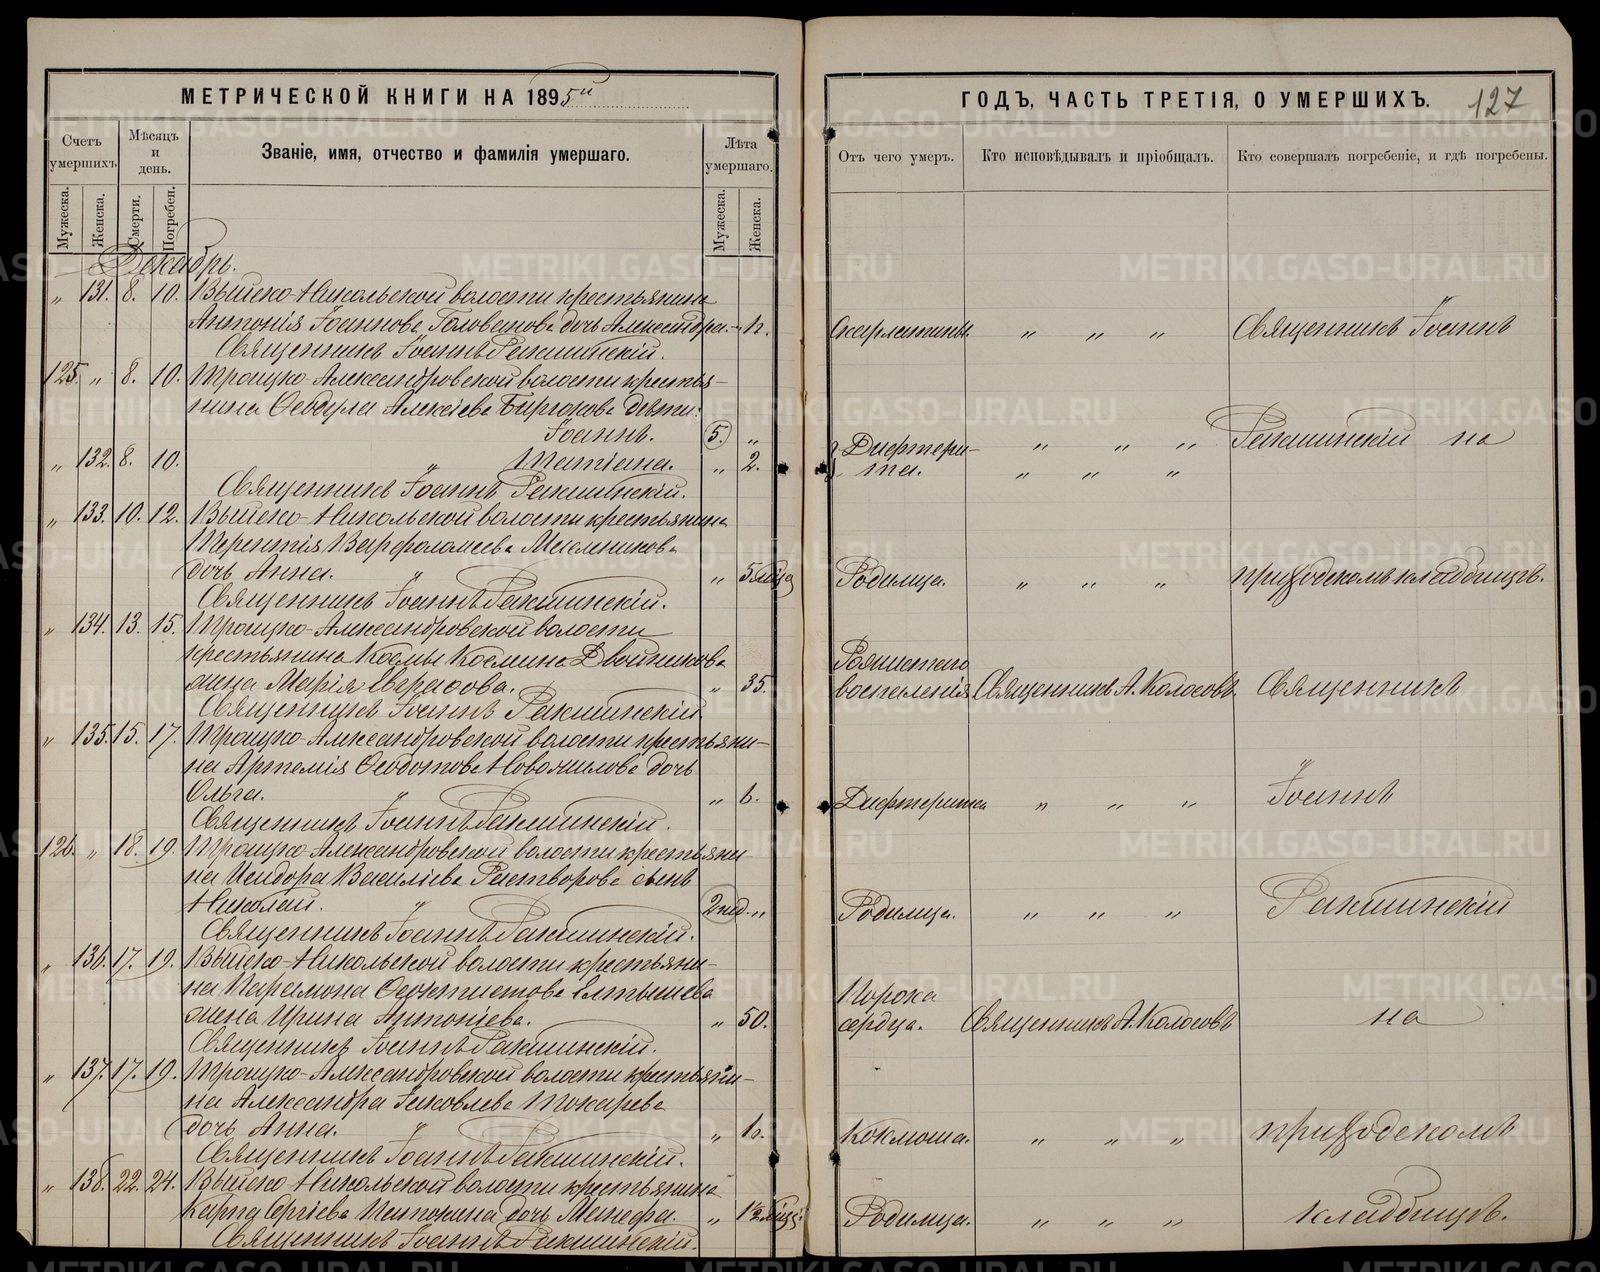 МЕТРИЧЕСКОЙ КНИГИ НА 1895й
ГОДЪ, ЧАСТЬ ТРЕТІЯ, О УМЕРШИХЪ.
127
Счетъ умершихъ.
Мѣсяцъ и день.
Званіе, имя, отчество и фамилія умершаго.
Лѣта умершаго.
Отъ чего умеръ.
Кто исповѣдывалъ и пріобщалъ.
Кто совершалъ погребеніе, и гдѣ погребены.
Мужеска. Женска. Смерти. Погребен. Мужеска. Женска.
Декабрь.
„ 131. 8. 10. Выйско-Никольской волости крестьянина
Антонія Іоаннова Голованова дочь Александра. „ 1 г. Скарлатины. „ „ „ Священникъ Іоаннъ
Священникъ Іоаннъ Ракшинскій.
125. „ 8. 10. Троицко-Александровской волости крестья-
нина Ѳеодула Алексіева Бирюкова дѣти:
Іоаннъ. 5. „ Дифтери- „ „ „ Ракшинскій на
„ 132. 8. 10. „ Татіана. „ 2. та. „ „ „
Священникъ Іоаннъ Ракшинскій.
„ 133. 10. 12. Выйско-Никольской волости крестьянина
Терентія Варфоломеева Мельникова
дочь Анна. „ „ 5 Родимца. „ „ „ приходскомъ кладбищѣ.
Священникъ Іоаннъ Ракшинскій.
„ 134. 13. 15. Троицко-Александровской волости
крестьянина Космы Космина Двойникова
жена Марія „ 35. воспаленія. Священникъ А. Колосовъ. Священникъ
Священникъ Іоаннъ Ракшинскій.
„ 135. 15. 17. Троицко-Александровской волости крестьяни-
на Артемія Ѳеодотова Новожилова дочь
Ольга. „ „ 6. Дифтерита. „ „ „ Іоаннъ
Священникъ Іоаннъ Ракшинскій.
126. „ 18. 19. Троицко-Александровской волости крестьяни-
на Исидора Василіева Растворова сынъ
Николай. „ 2 нед. „ Родимца. „ „ „ Ракшинскій
Священникъ Іоаннъ Ракшинскій.
„ 136. 17. 19. Выйско-Никольской волости крестьяни-
на Парамона Ѳеоктистова Елтышева Порока
жена Ирина Антоніева. „ 50. сердца. Священникъ А. Колосовъ на
Священникъ Іоаннъ Ракшинскій.
„ 137. 17. 19. Троицко-Александровской волости крестьяни-
на Александра Іаковлева Токарева
дочь Анна. „ „ 1 г. Коклюша. „ „ „ приходскомъ
Священникъ Іоаннъ Ракшинскій.
„ 138. 22. 24. Выйско-Никольской волости крестьянина
Карпа Сергіева дочь Манефа. „ 1½ Родимца. „ „ „ кладбищѣ.
Священникъ Іоаннъ Ракшинскій.
METRIKI.GASO-URAL.RU